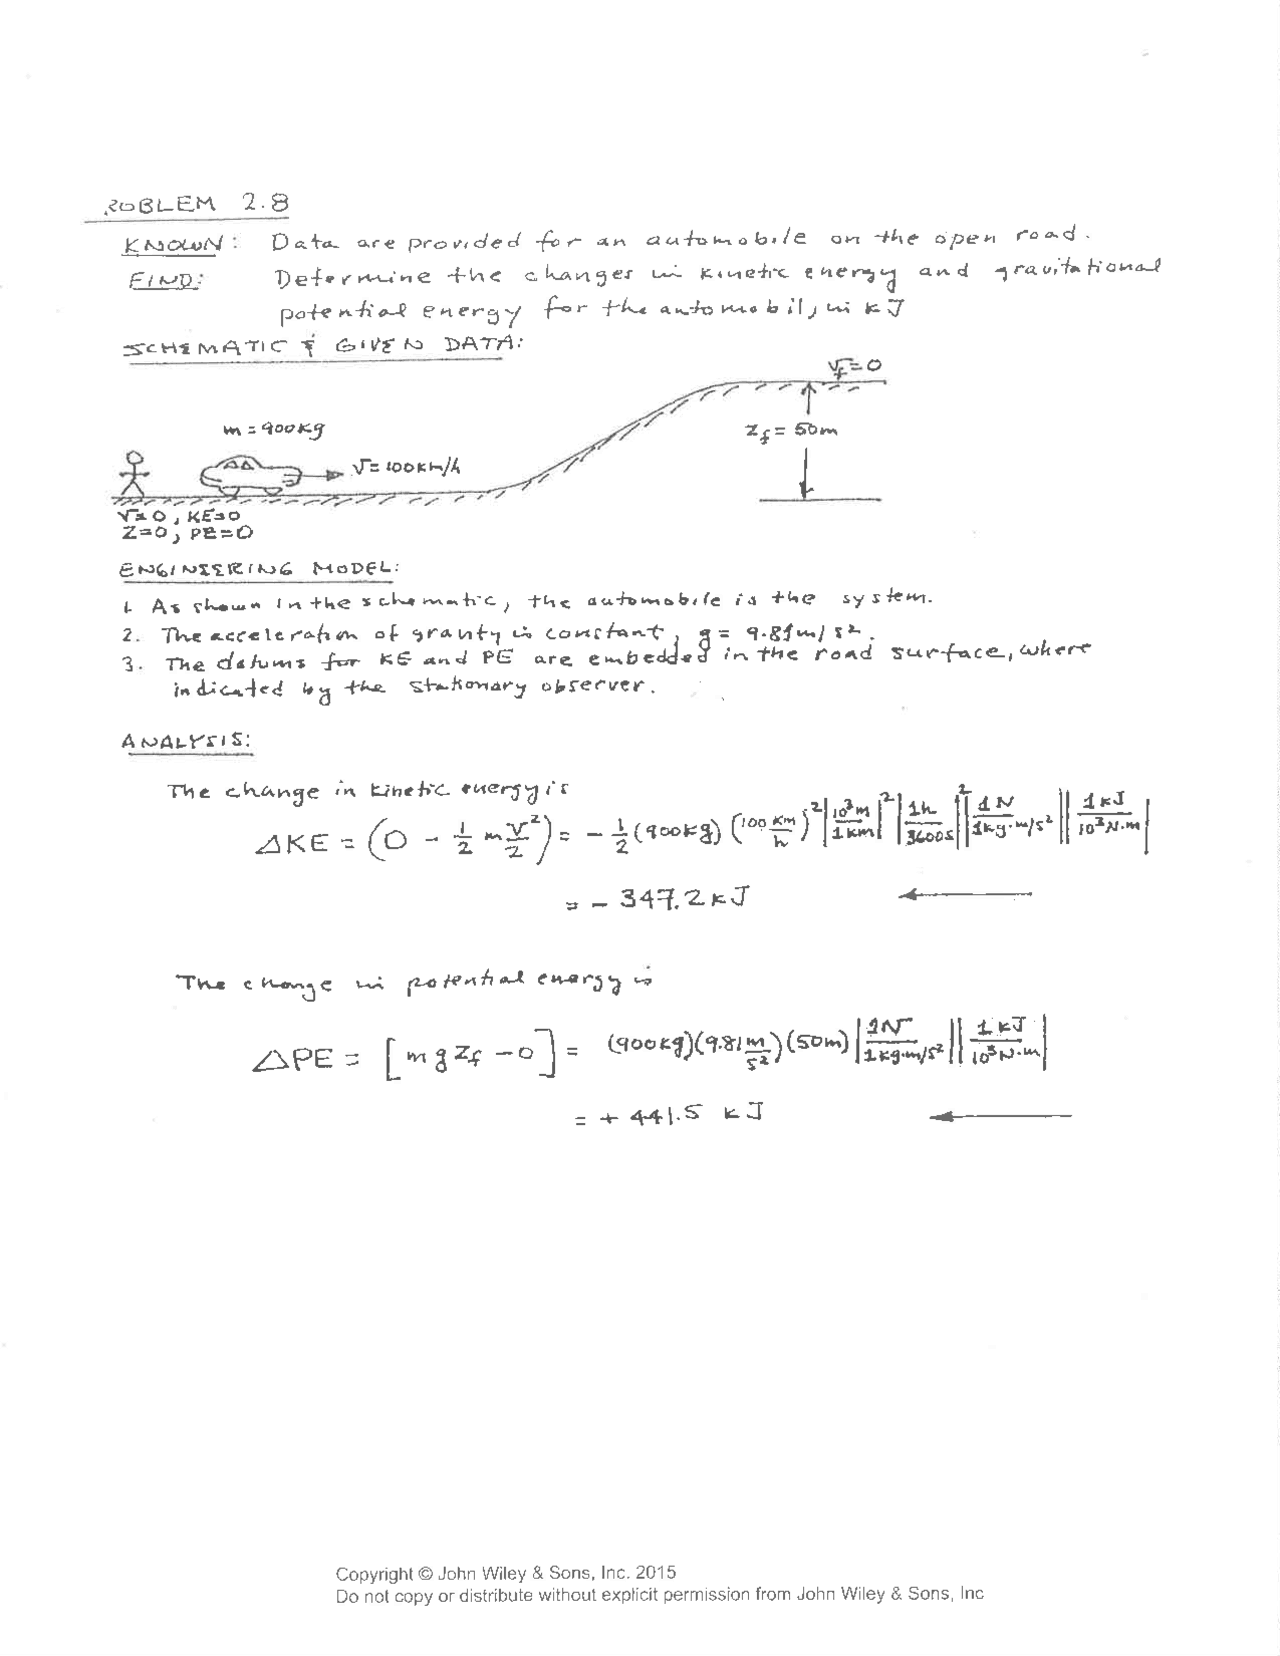 ROBLEM 2.8
KNOWN: Data are provided for an automobile on the open road.
FIND: Determine the changes in kinetic energy and gravitational
potential energy for the automobil, in kJ
SCHEMATIC & GIVEN DATA:
V_f=0
m = 900kg
z_f = 50m
V= 100km/h
V=0, KE=0
Z=0, PE=0
ENGINEERING MODEL:
1. As shown in the schematic, the automobile is the system.
2. The acceleration of gravity is constant, g = 9.81m/s².
3. The datums for KE and PE are embedded in the road surface, where
indicated by the stationary observer.
ANALYSIS:
The change in kinetic energy is
ΔKE = (0 - 1/2 m V²/2) = - 1/2 (900kg) (100 km/h)² |10³m/1km|² |1h/3600s|² |1N/1kg·m/s²| |1kJ/10³N·m|
= - 347.2 kJ
The change in potential energy is
ΔPE = [m g z_f - 0] = (900kg)(9.81 m/s²)(50m) |1N/1kg·m/s²| |1kJ/10³N·m|
= + 441.5 kJ
Copyright © John Wiley & Sons, Inc. 2015
Do not copy or distribute without explicit permission from John Wiley & Sons, Inc